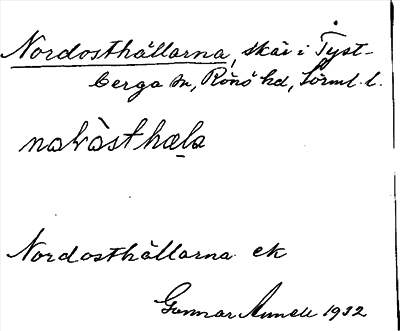 Nordosthällarna, skär i Tyst-
berga sn, Rönö hd, Sörml. l.
Nordosthällarna ek
Gunnar Linnell 1932